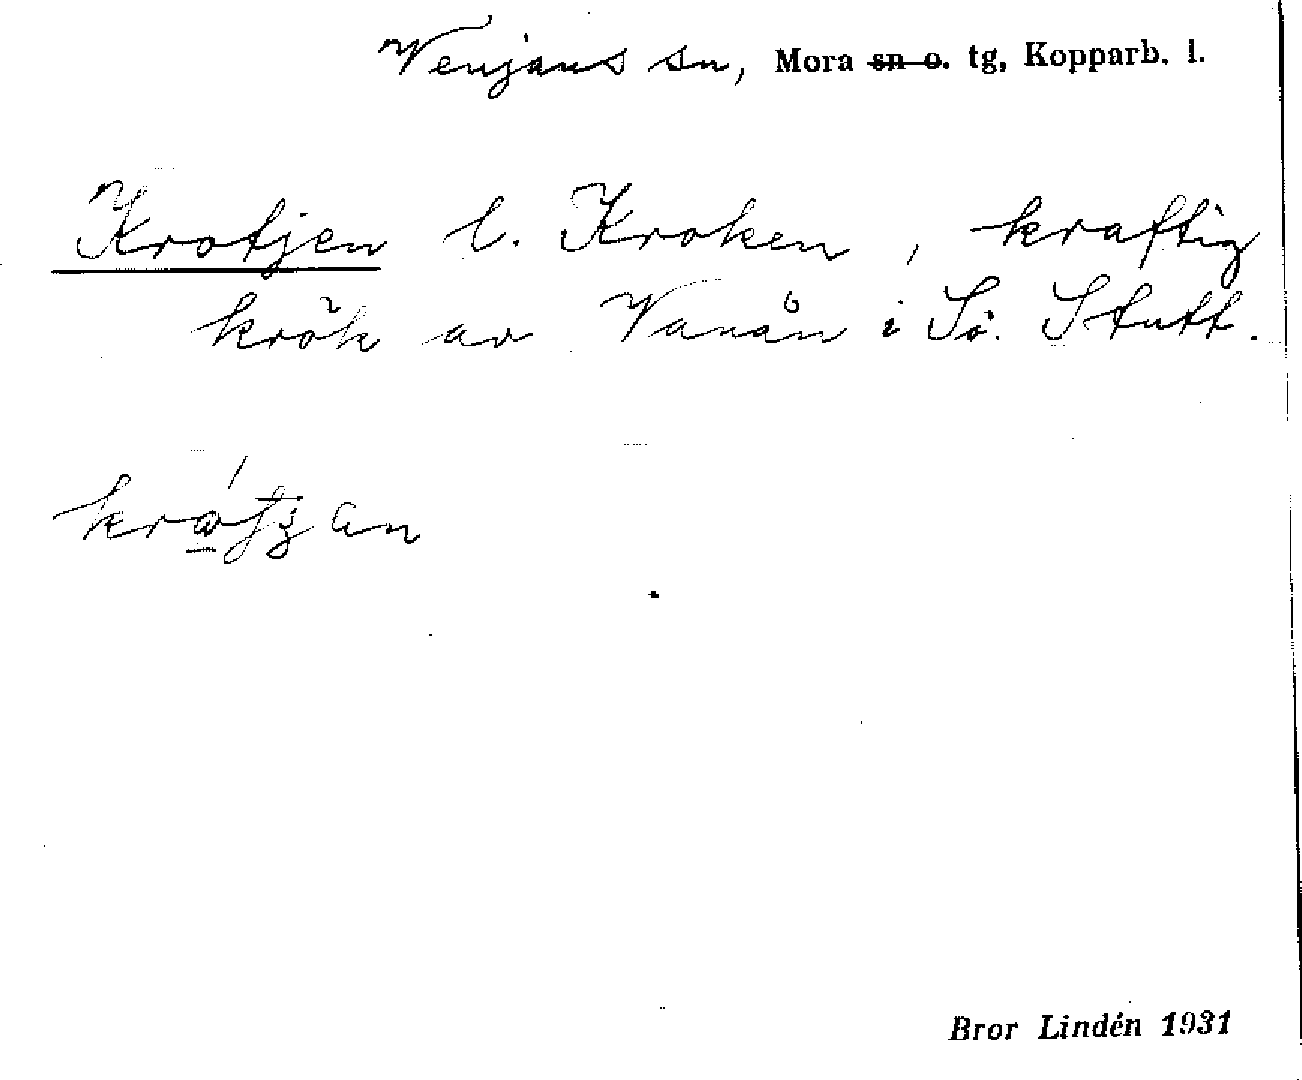 Venjans sn, Mora sn o. tg, Kopparb. l.
Krotjen l. Kroken, kraftig
krök av Vanån i Sö. Stutt.
Bror Lindén 1931